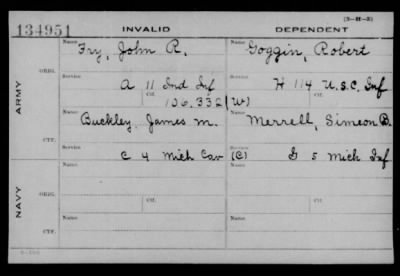 (3-H-3)
134951 INVALID DEPENDENT
Name Name
Fry, John R. Goggin, Robert
ORIG. Service Service
A 11 Ind Inf H 114 U.S.C. Inf
Ctf. Ctf.
106,332 (W)
ARMY
Name Name
Buckley, James M. Merrell, Simeon B.
CTF. Service Service
C 4 Mich Cav (C) G 5 Mich Inf
Name Name
ORIG.
Ctf. Ctf.
NAVY
Name Name
CTF.